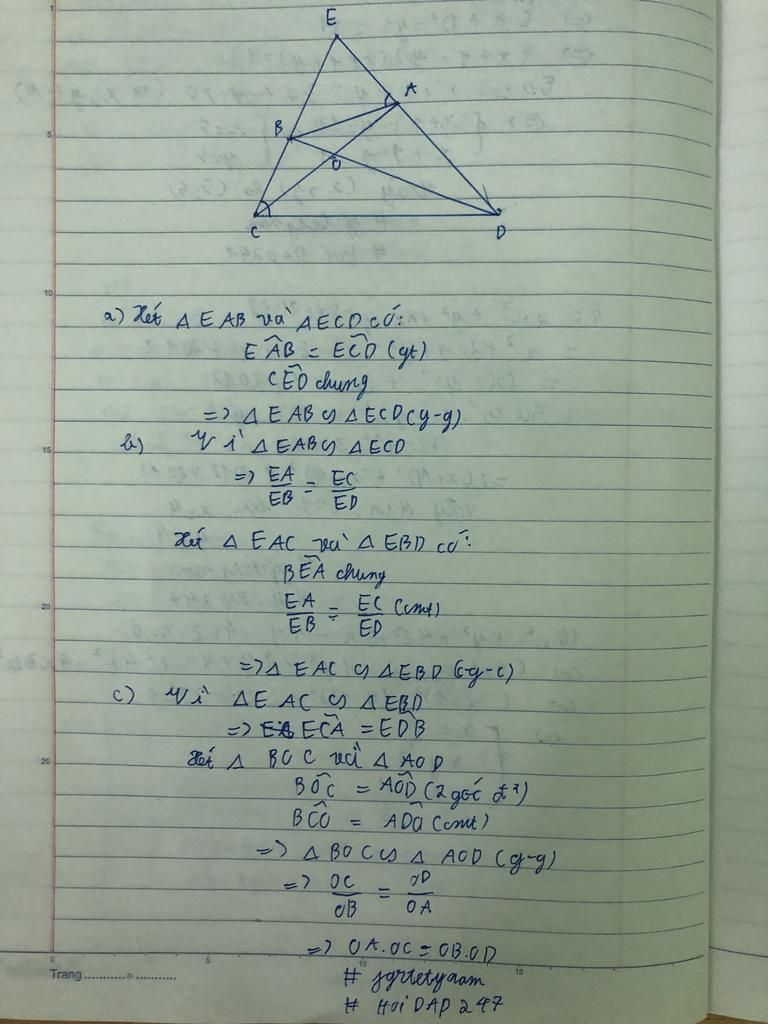 E
A
B
O
C
D
a) Xét △ EAB và △ ECD có:
EÂB = EĈD (gt)
CÊD chung
=> △ EAB ∽ △ ECD (g-g)
b) Vì △ EAB ∽ △ ECD
=> EA/EB = EC/ED
Xét △ EAC và △ EBD có:
BÊA chung
EA/EB = EC/ED (cmt)
=> △ EAC ∽ △ EBD (c-g-c)
c) Vì △ EAC ∽ △ EBD
=> EĈA = ED̂B
Xét △ BOC và △ AOD
BÔC = AÔD (2 góc đ²)
BĈO = AD̂O (cmt)
=> △ BOC ∽ △ AOD (g-g)
=> OC/OB = OD/OA
=> OA.OC = OB.OD
#
# HOIDAP 247
Trang
5
10
15
20
25
5
10
15